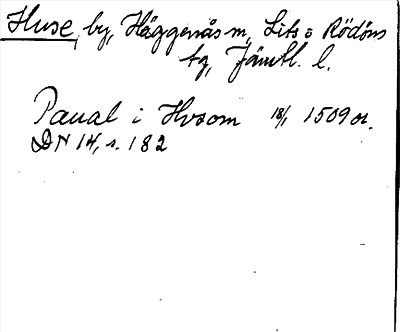 Huse, by, Häggenås sn, Lits o Rödöns
tg, Jämtl. l.
Paual i Hvsom 18/1 1509 or.
DN 14, s. 182